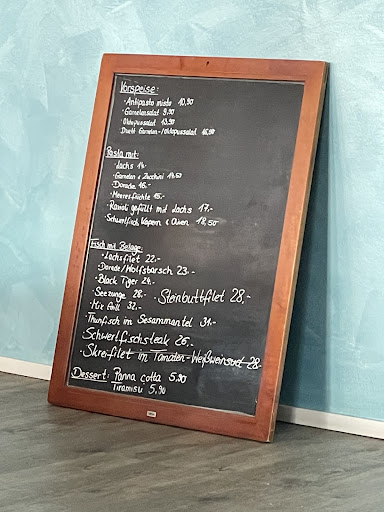 Vorspeise:
· Antipasto misto 10,90
· Garnelensalat 9.90
· Oktopussalat 13.90
Duett Garnelen-/Oktopussalat 16.90
Pasta mit:
· Lachs 14.-
· Garnelen + Zucchini 14.50
· Dorade 16.-
· Meeresfrüchte 15.-
· Ravioli gefüllt mit Lachs 17.-
· Schwertfisch, Kapern & Oliven 18,50
Fisch mit Beilage:
· Lachsfilet 22.-
· Dorade/Wolfsbarsch 23.-
· Black Tiger 24.-
· Seezunge 28.- · Steinbuttfilet 28,-
· Mix Grill 32,-
· Thunfisch im Sesammantel 31,-
Schwertfischsteak 26.-
· Skreifilet in Tomaten-Weißweinsud 28.-
Dessert: Panna cotta 5,90
Tiramisu 5,90